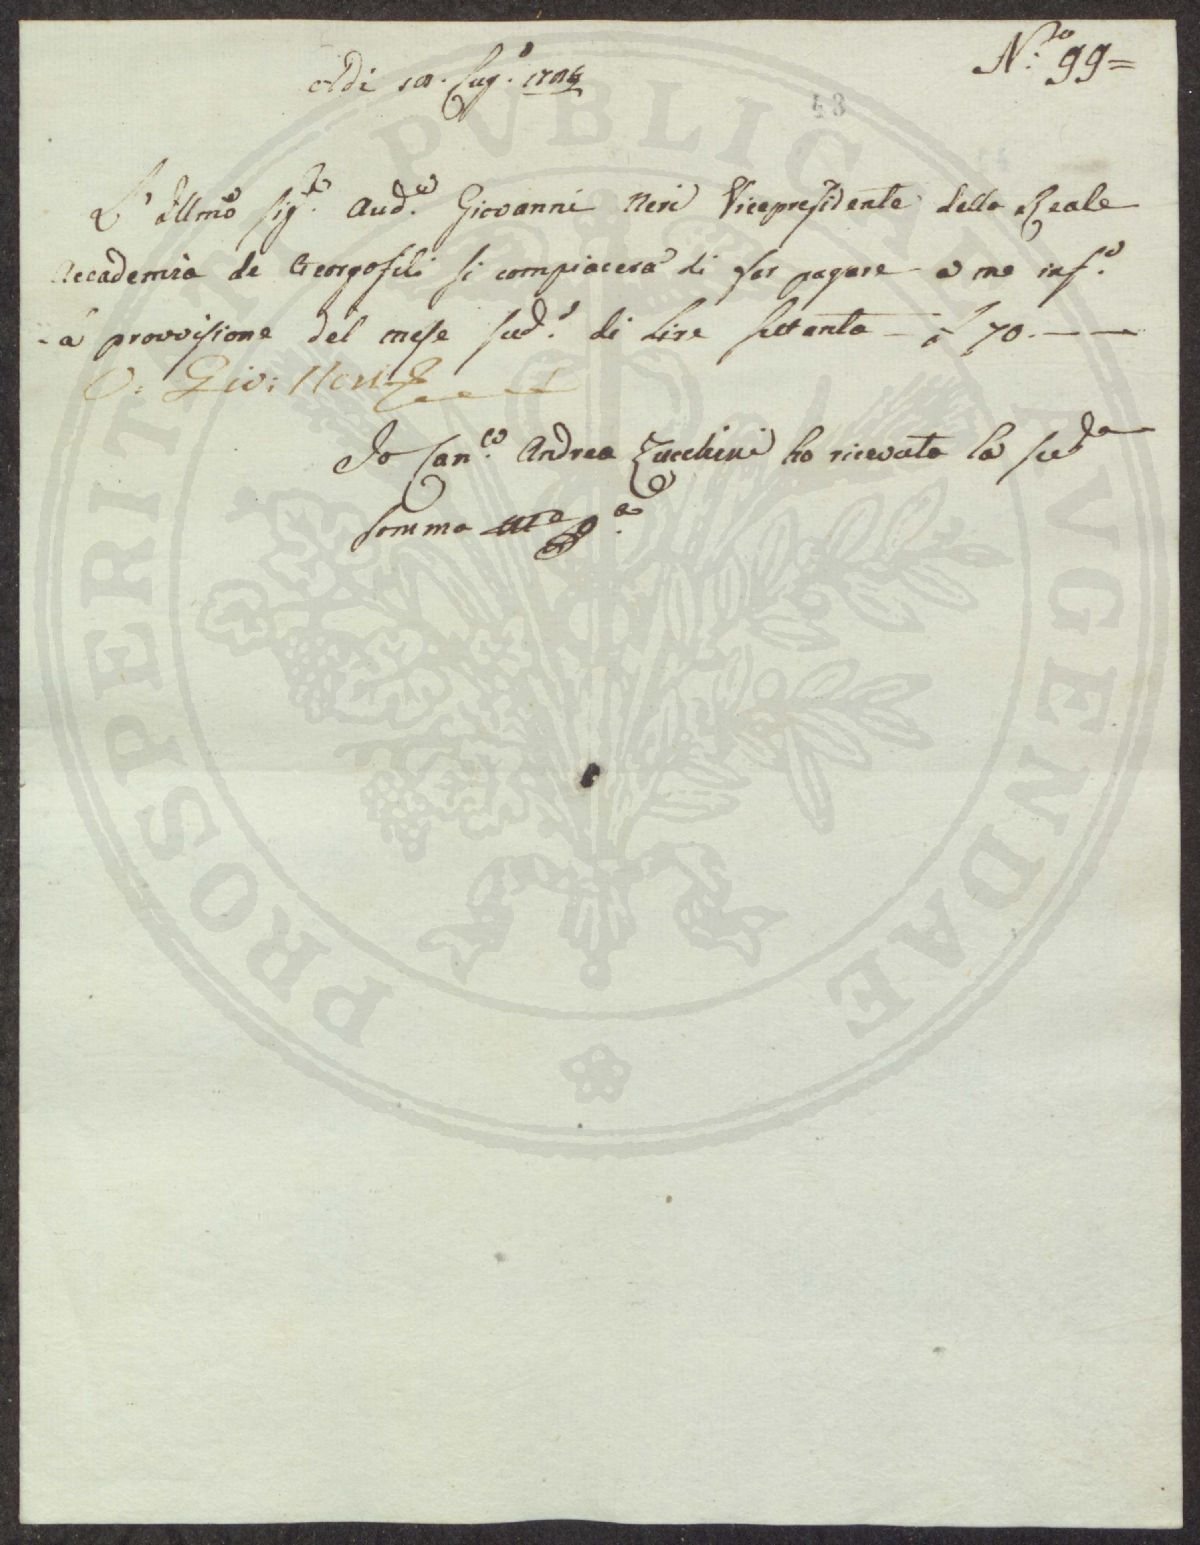 N.ro 99=
Adi 10. Lug.o
48
L'Illmo Sig.re Aud.e Giovanni Neri Vicepresidente della Reale
Accademia de Georgofili si compiacerà di far pagare a me inf.o
a provvisione del mese sud.o di Lire settanta — £ 70. —
V: Gio: Neri
Io Can.co Andrea Zucchini ho ricevuta la sud.a
somma
PROSPERITATI PVBLICAE AVGENDAE